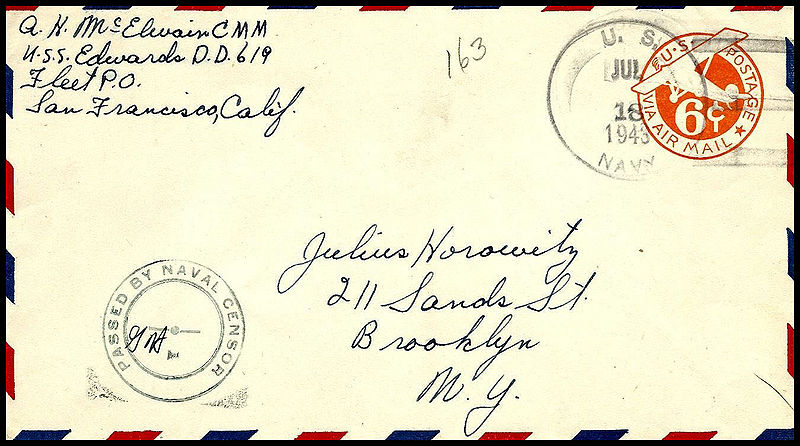 A. H. McElwain CMM
U.S.S. Edwards D.D. 619
Fleet P.O.
San Francisco, Calif.
163
U. S.
JUL
18
1943
NAVY
U.S. POSTAGE
6¢
VIA AIR MAIL
Julius Horowitz
211 Sands St.
Brooklyn
N. Y.
PASSED BY NAVAL CENSOR